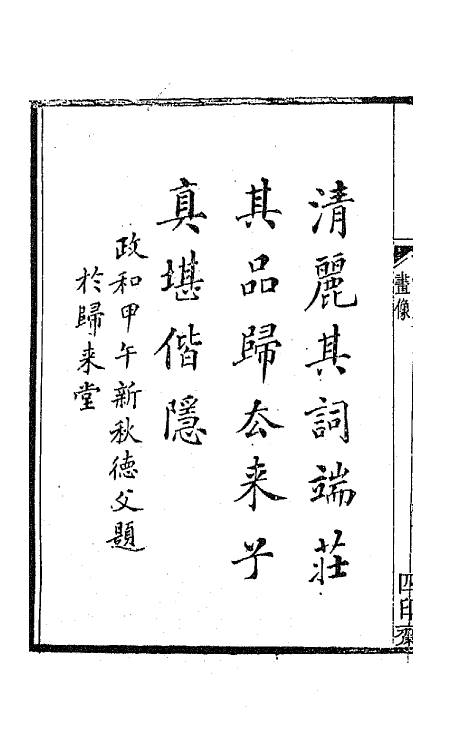 清麗其詞端莊
其品歸去来兮
真堪偕隱
政和甲午新秋德父題
於歸来堂
畫像
四印齋